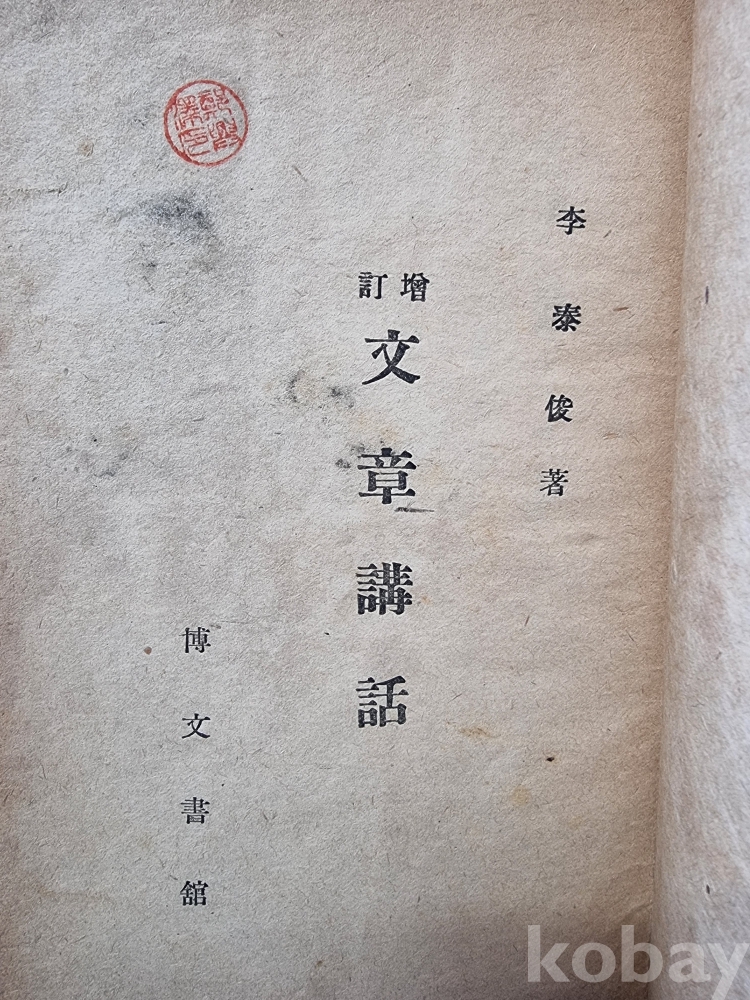 李泰俊著
增訂
文章講話
博文書舘
kobay